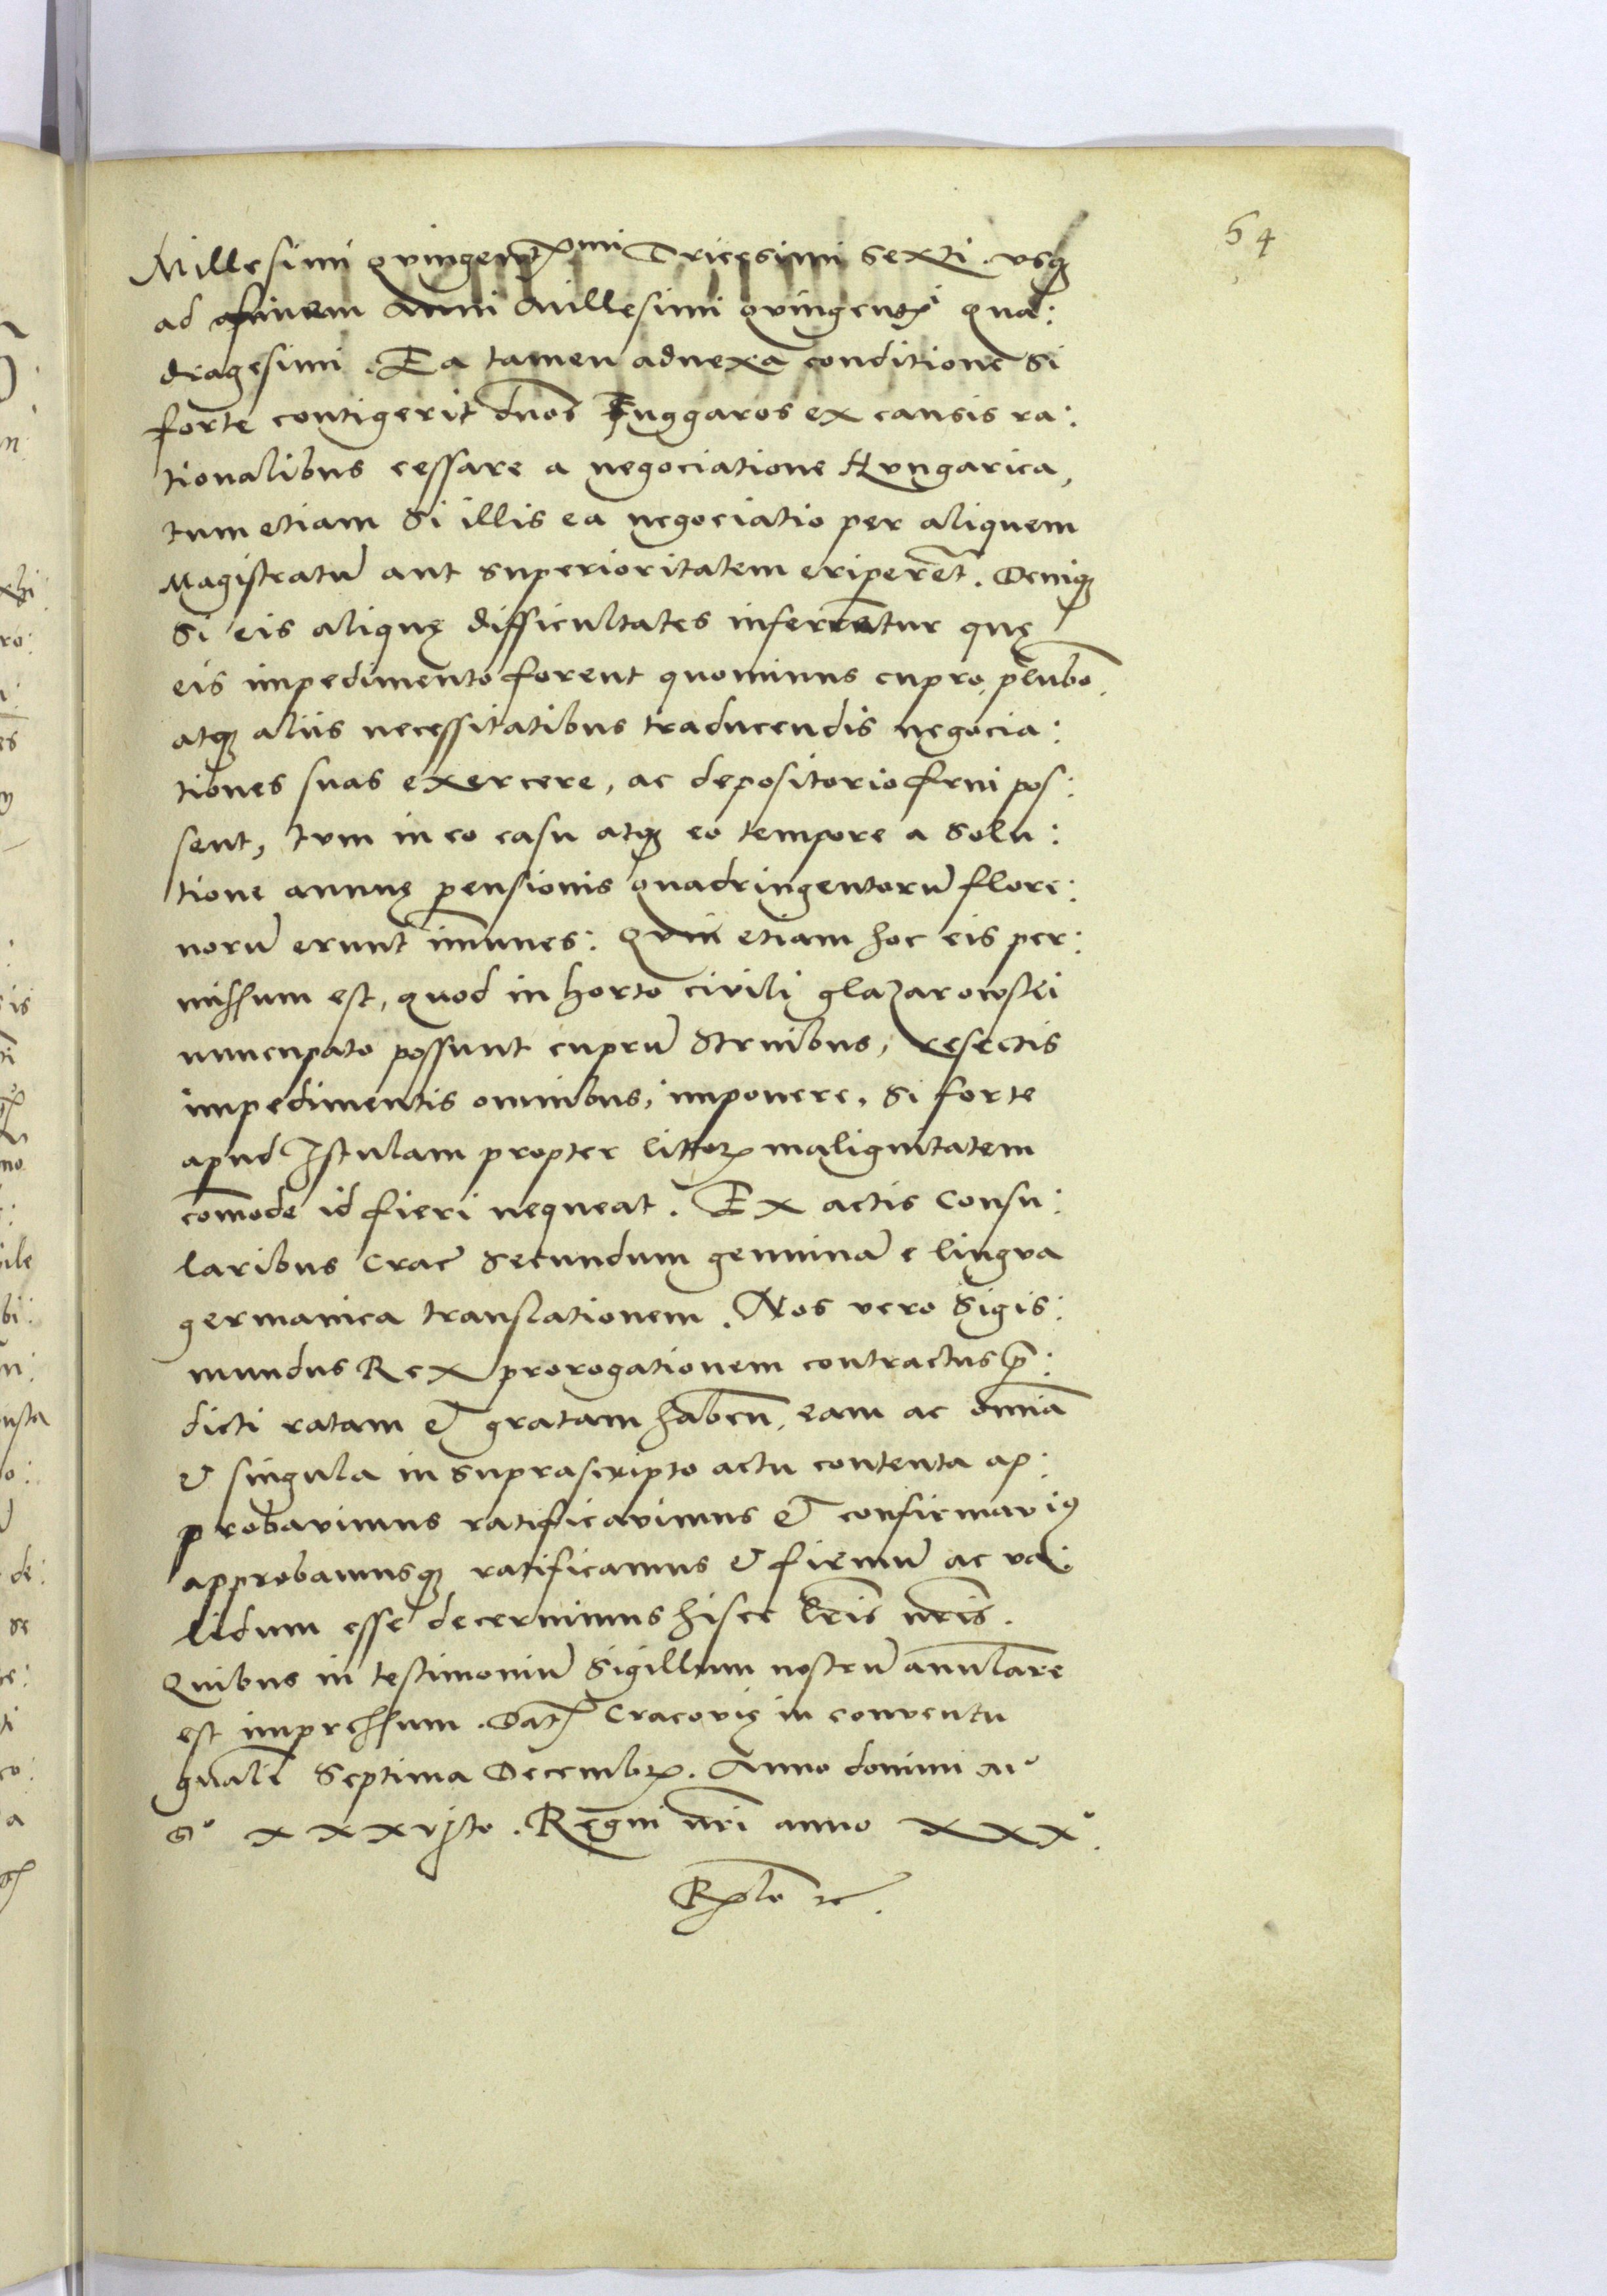 54
Millesimi quingentesimi Tricesimi sexti usq
ad finem Anni Millesimi quingentesi qua:
dragesimi. Ea tamen adnexa conditione Si
forte contigerit dnos Fuggaros ex causis ra:
tionalibus cessare a negociatione Hungarica,
tum etiam Si illis ea negociatio per aliquem
Magistratū aut superioritatem eriperēt. Deniq
Si eis aliquę difficultates inferrentur quę
eis impedimento forent quominus cupro, plūbo,
atq aliis necessitatibus traducendis negocia:
tiones suas exercere, ac depositorio frui pos:
sent, tum in eo casu atq eo tempore a Solu:
tione annuę pensionis quadringentorū flore:
norū erunt īmunes: Quin etiam hoc eis per:
missum est, quod in horto civili glazarowski
nuncupato possunt cuprū Struibus, resectis
impedimentis omnibus, imponere, Si forte
apud Istulam propter littorꝝ malignitatem
cōmode id fieri nequeat. Ex actis Consu:
laribus Crac Secundum genuinā e lingua
germanica translationem. Nos vero Sigis:
mundus Rex prorogationem contractus p̄:
dicti ratam et gratam habeñ, eam ac omnia
et singula in suprascripto actu contenta ap:
probavimus ratificavimus et confirmavi9
approbamusq ratificamus et firmū ac va:
lidum esse decernimus hisce lr̄is nr̄is.
Quibus in testimoniū Sigillum nostrū annulare
est impressum. Dat Cracovię in conventu
gn̄ali Septima Decembr. Anno domini Mº
Dº xxxvjto. Regni nr̄i anno xxxº.